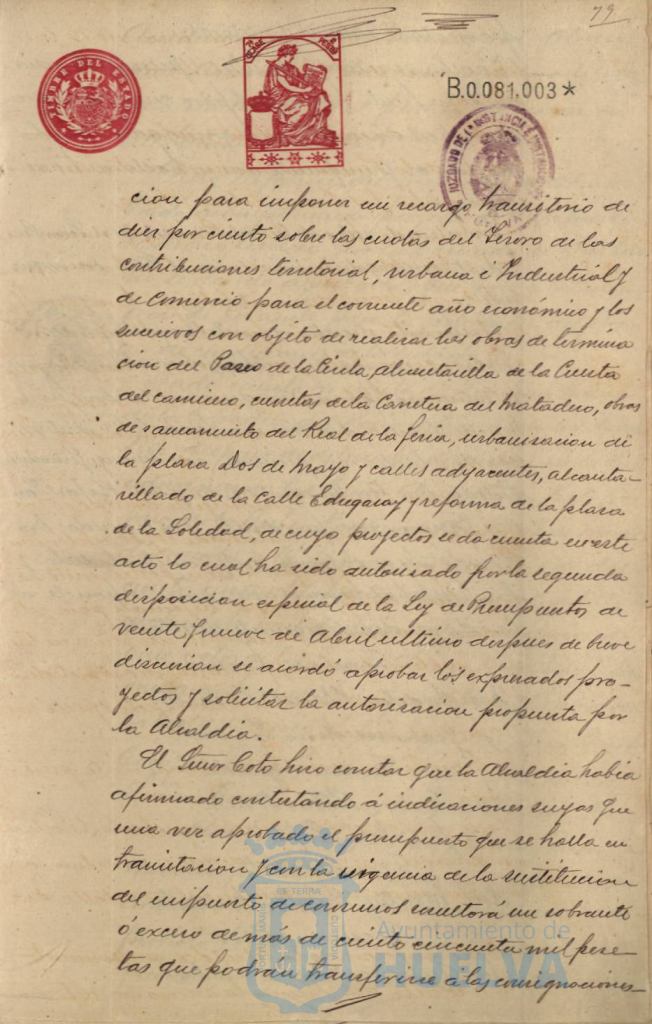 79
TIMBRE DEL ESTADO
B.0.081.003*
cion para imponer un recargo transitorio de
diez por ciento sobre las cuotas del Tesoro de las
contribuciones territorial, urbana é Industrial y
de Comercio para el corriente año económico y los
sucesivos con objeto de realizar las obras de termina
cion del Paseo de la Cinta, alcantarilla de la Cuesta
del carnicero, cunetas de la Carretera del Matadero, obras
de saneamiento del Real de la feria, urbanisacion de
la plaza Dos de Mayo y calles adyacentes, alcanta-
rillado de la Calle Echegaray y reforma de la plaza
de la Soledad, de cuyo proyectos se dá cuenta en este
acto lo cual ha sido autorisado por la segunda
disposicion especial de la Ley de Presupuestos de
veinte y nueve de Abril ultimo despues de breve
discusion se acordó aprobar los expresados pro-
yectos y solicitar la autorisacion propuesta por
la Alcaldia.
El Señor Coto hizo constar que la Alcaldia habia
afirmado contestando á indicaciones suyas que
una vez aprobado el presupuesto que se halla en
tramitacion y con la vigencia de la sustitucion
del impuesto de consumos resultará un sobrante
ó exceso de más de ciento cincuenta mil pese-
tas que podran transferirse á las consignaciones-
Ayuntamiento de
HUELVA